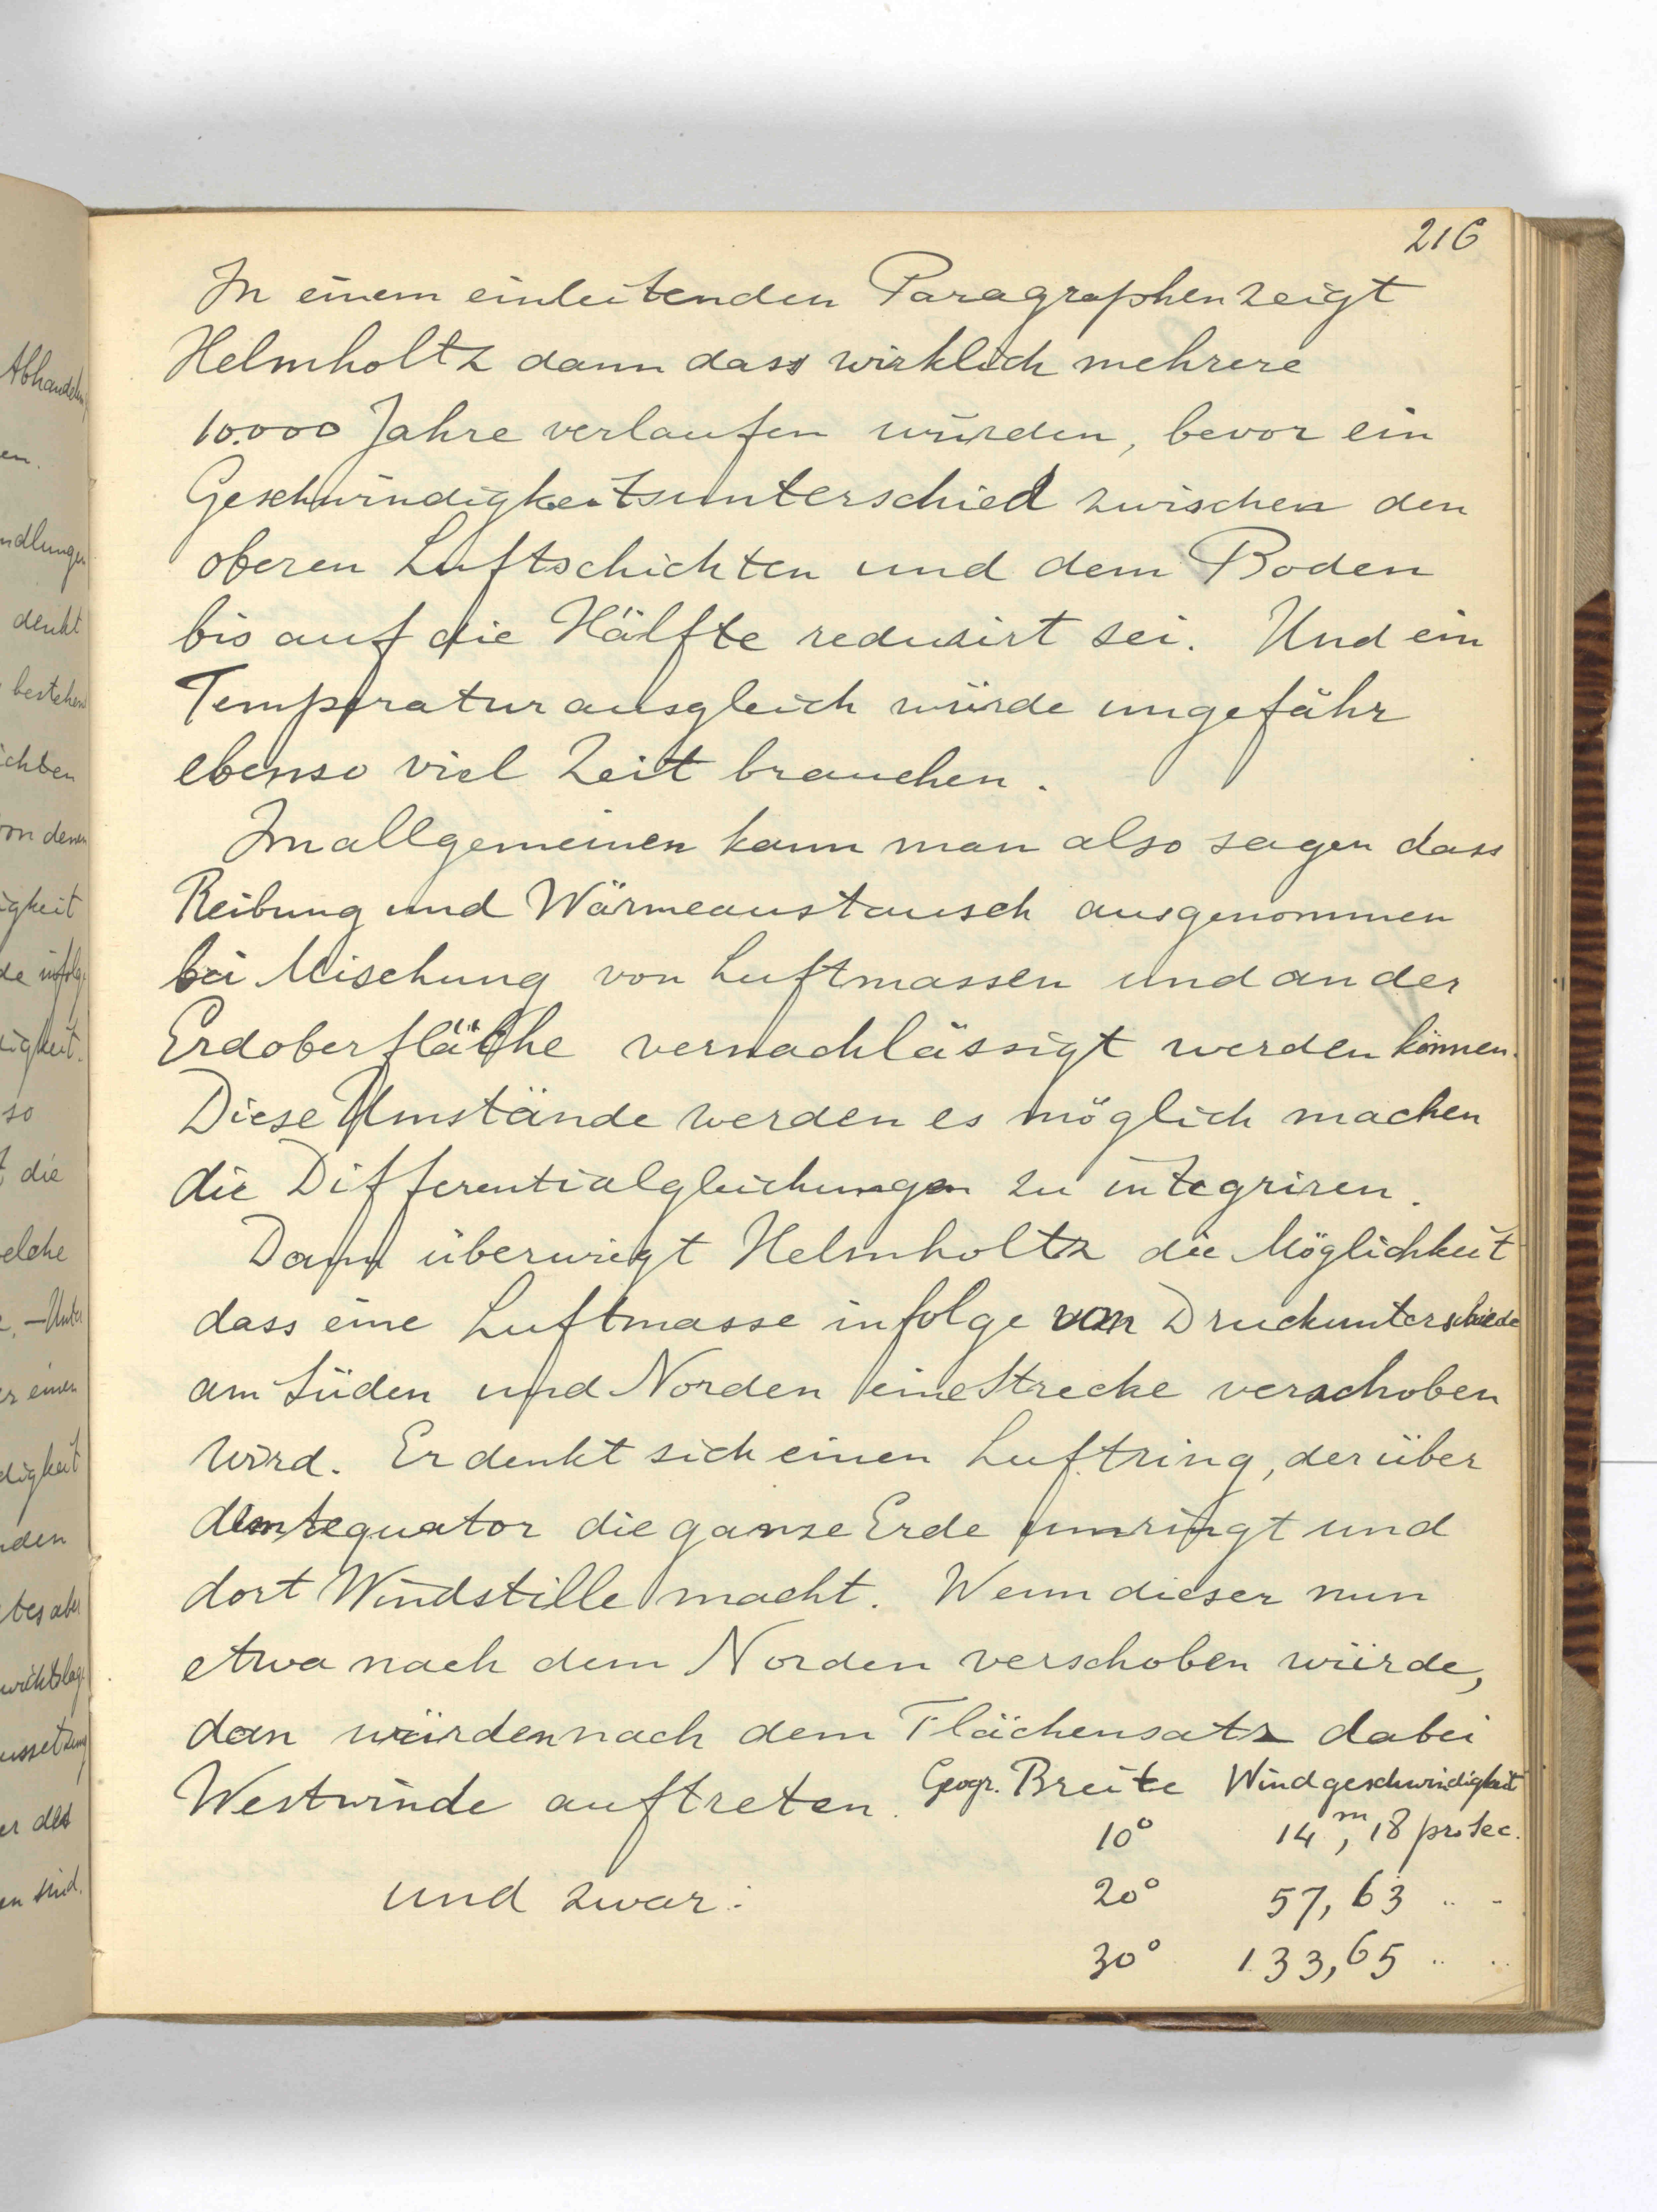 216
In einem einleitenden Paragraphen zeigt
Helmholtz dann dass wirklich mehrere
10.000 Jahre verlaufen würden, bevor ein
Geschwindigkeitsunterschied zwischen den
oberen Luftschichten und dem Boden
bis auf die Hälfte reduzirt sei. Und ein
Temperaturausgleich würde ungefähr
ebenso viel Zeit brauchen.
Im allgemeinen kann man also sagen dass
Reibung und Wärmeaustausch ausgenommen
bei Mischung von Luftmassen und an der
Erdoberfläche vernachlässigt werden können.
Diese Umstände werden es möglich machen
die Differentialgleichungen zu integriren.
Dann überwiegt Helmholtz die Möglichkeit
dass eine Luftmasse infolge von Druckunterschiede
am Süden und Norden eine Strecke verschoben
wird. Er denkt sich einen Luftring, der über
dem Aequator die ganze Erde umringt und
dort Windstille macht. Wenn dieser nun
etwa nach dem Norden verschoben würde,
dan würden nach dem Flächensatz dabei
Westwinde auftreten. Geogr. Breite Windgeschwindigkeit
10° 14,m18 pro Sec.
und zwar: 20° 57,63 .. -
30° 133,65 .. ..
Abhandelung
en.
ndlungen
denkt
bestehend
ichten
von denen
igkeit
de infolge
digkeit.
so
die
elche
. - Unter
er einen
digkeit
nden
tes aber
wichtslage
ussetzung
er des
en sind.